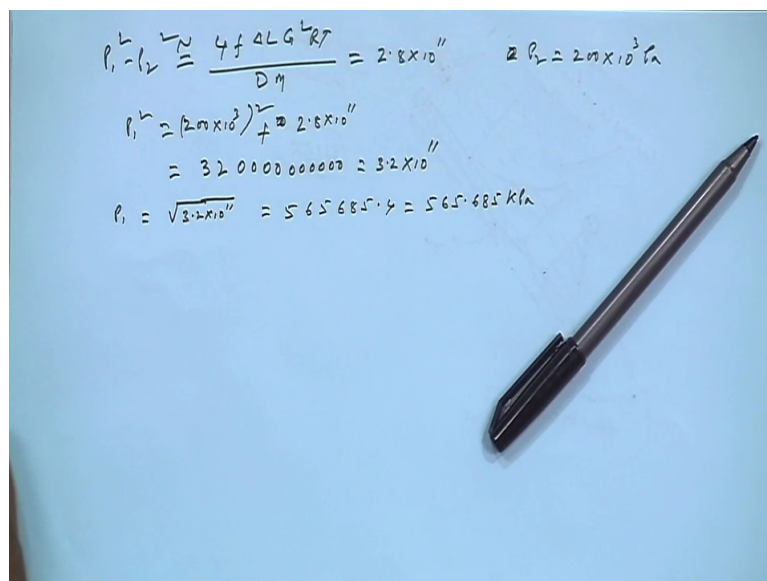 P₁² - P₂² ≅ 4 f ΔL G² RT / D M = 2.8 x 10¹¹ P₂ = 200 x 10³ Pa
P₁² = (200 x 10³)² + 2.8 x 10¹¹
= 320000000000 = 3.2 x 10¹¹
P₁ = √3.2 x 10¹¹ = 565685.4 = 565.685 KPa